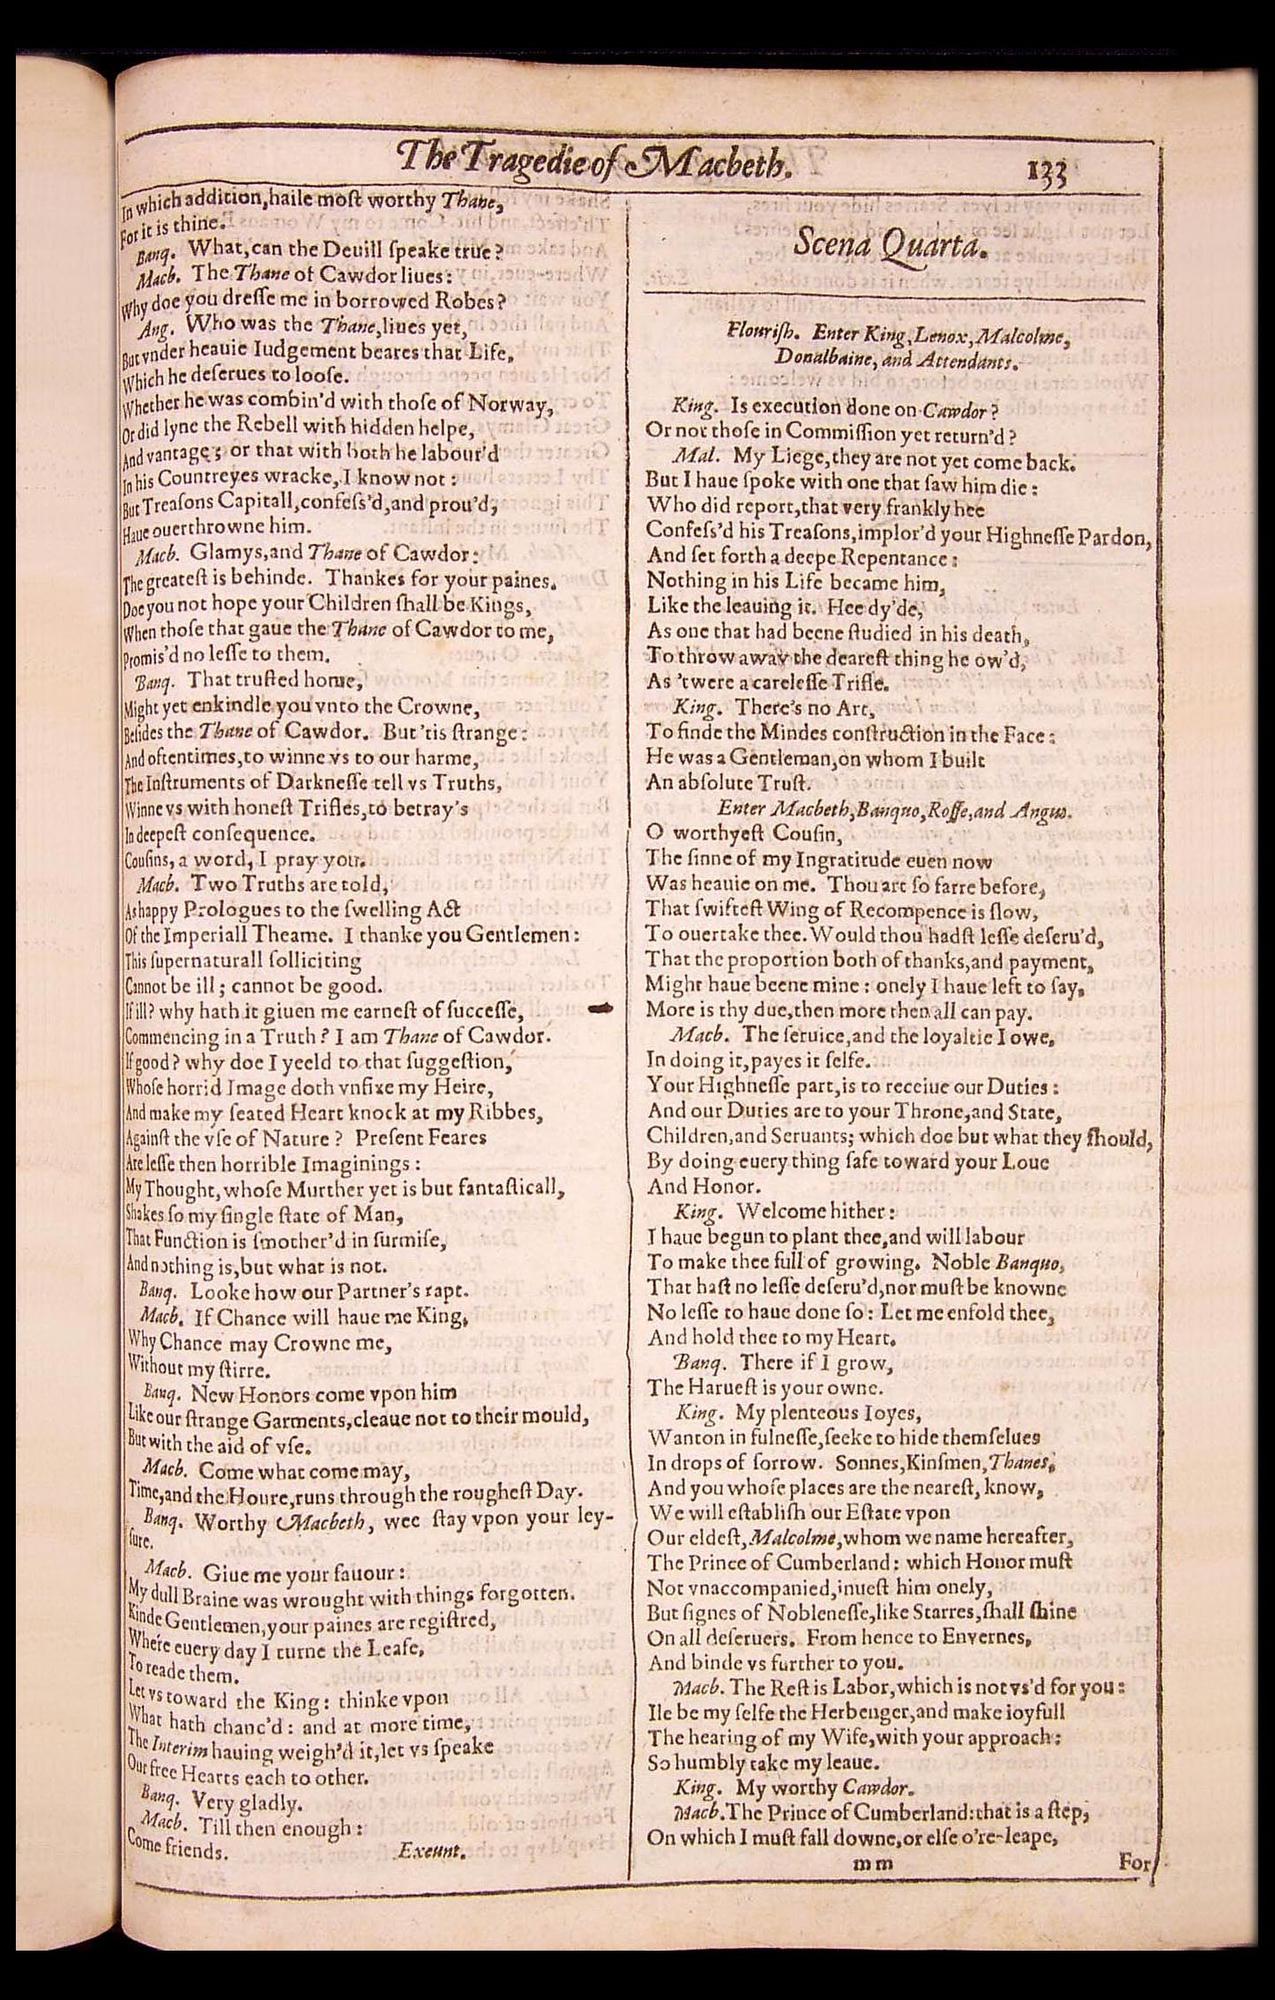 The Tragedie of Macbeth. 133
In which addition, haile most worthy Thane,
For it is thine.
Banq. What, can the Deuill speake true?
Macb. The Thane of Cawdor liues:
Why doe you dresse me in borrowed Robes?
Ang. Who was the Thane, liues yet,
But vnder heauie Iudgement beares that Life,
Which he deserues to loose.
Whether he was combin'd with those of Norway,
Or did lyne the Rebell with hidden helpe,
And vantage; or that with both he labour'd
In his Countreyes wracke, I know not:
But Treasons Capitall, confess'd, and prou'd,
Haue ouerthrowne him.
Macb. Glamys, and Thane of Cawdor:
The greatest is behinde. Thankes for your paines.
Doe you not hope your Children shall be Kings,
When those that gaue the Thane of Cawdor to me,
Promis'd no lesse to them.
Banq. That trusted home,
Might yet enkindle you vnto the Crowne,
Besides the Thane of Cawdor. But 'tis strange:
And oftentimes, to winne vs to our harme,
The Instruments of Darknesse tell vs Truths,
Winne vs with honest Trifles, to betray's
In deepest consequence.
Cousins, a word, I pray you.
Macb. Two Truths are told,
As happy Prologues to the swelling Act
Of the Imperiall Theame. I thanke you Gentlemen:
This supernaturall solliciting
Cannot be ill; cannot be good.
If ill? why hath it giuen me earnest of successe,
Commencing in a Truth? I am Thane of Cawdor.
If good? why doe I yeeld to that suggestion,
Whose horrid Image doth vnfixe my Heire,
And make my seated Heart knock at my Ribbes,
Against the vse of Nature? Present Feares
Are lesse then horrible Imaginings:
My Thought, whose Murther yet is but fantasticall,
Shakes so my single state of Man,
That Function is smother'd in surmise,
And nothing is, but what is not.
Banq. Looke how our Partner's rapt.
Macb. If Chance will haue me King,
Why Chance may Crowne me,
Without my stirre.
Banq. New Honors come vpon him
Like our strange Garments, cleaue not to their mould,
But with the aid of vse.
Macb. Come what come may,
Time, and the Houre, runs through the roughest Day.
Banq. Worthy Macbeth, wee stay vpon your ley-
sure.
Macb. Giue me your fauour:
My dull Braine was wrought with things forgotten.
Kinde Gentlemen, your paines are registred,
Where euery day I turne the Leafe,
To reade them.
Let vs toward the King: thinke vpon
What hath chanc'd: and at more time,
The Interim hauing weigh'd it, let vs speake
Our free Hearts each to other.
Banq. Very gladly.
Macb. Till then enough:
Come friends. Exeunt.
Scena Quarta.
Flourish. Enter King, Lenox, Malcolme,
Donalbaine, and Attendants.
King. Is execution done on Cawdor?
Or not those in Commission yet return'd?
Mal. My Liege, they are not yet come back.
But I haue spoke with one that saw him die:
Who did report, that very frankly hee
Confess'd his Treasons, implor'd your Highnesse Pardon,
And set forth a deepe Repentance:
Nothing in his Life became him,
Like the leauing it. Hee dy'de,
As one that had beene studied in his death,
To throw away the dearest thing he ow'd,
As 'twere a carelesse Trifle.
King. There's no Art,
To finde the Mindes construction in the Face:
He was a Gentleman, on whom I built
An absolute Trust.
Enter Macbeth, Banquo, Rosse, and Angus.
O worthyest Cousin,
The sinne of my Ingratitude euen now
Was heauie on me. Thou art so farre before,
That swiftest Wing of Recompence is slow,
To ouertake thee. Would thou hadst lesse deseru'd,
That the proportion both of thanks, and payment,
Might haue beene mine: onely I haue left to say,
More is thy due, then more then all can pay.
Macb. The seruice, and the loyaltie I owe,
In doing it, payes it selfe.
Your Highnesse part, is to receiue our Duties:
And our Duties are to your Throne, and State,
Children, and Seruants; which doe but what they should,
By doing euery thing safe toward your Loue
And Honor.
King. Welcome hither:
I haue begun to plant thee, and will labour
To make thee full of growing. Noble Banquo,
That hast no lesse deseru'd, nor must be knowne
No lesse to haue done so: Let me enfold thee,
And hold thee to my Heart.
Banq. There if I grow,
The Haruest is your owne.
King. My plenteous Ioyes,
Wanton in fulnesse, seeke to hide themselues
In drops of sorrow. Sonnes, Kinsmen, Thanes,
And you whose places are the nearest, know,
We will establish our Estate vpon
Our eldest, Malcolme, whom we name hereafter,
The Prince of Cumberland: which Honor must
Not vnaccompanied, inuest him onely,
But signes of Noblenesse, like Starres, shall shine
On all deseruers. From hence to Envernes,
And binde vs further to you.
Macb. The Rest is Labor, which is not vs'd for you:
Ile be my selfe the Herbenger, and make ioyfull
The hearing of my Wife, with your approach:
So humbly take my leaue.
King. My worthy Cawdor.
Macb. The Prince of Cumberland: that is a step,
On which I must fall downe, or else o're-leape,
mm For